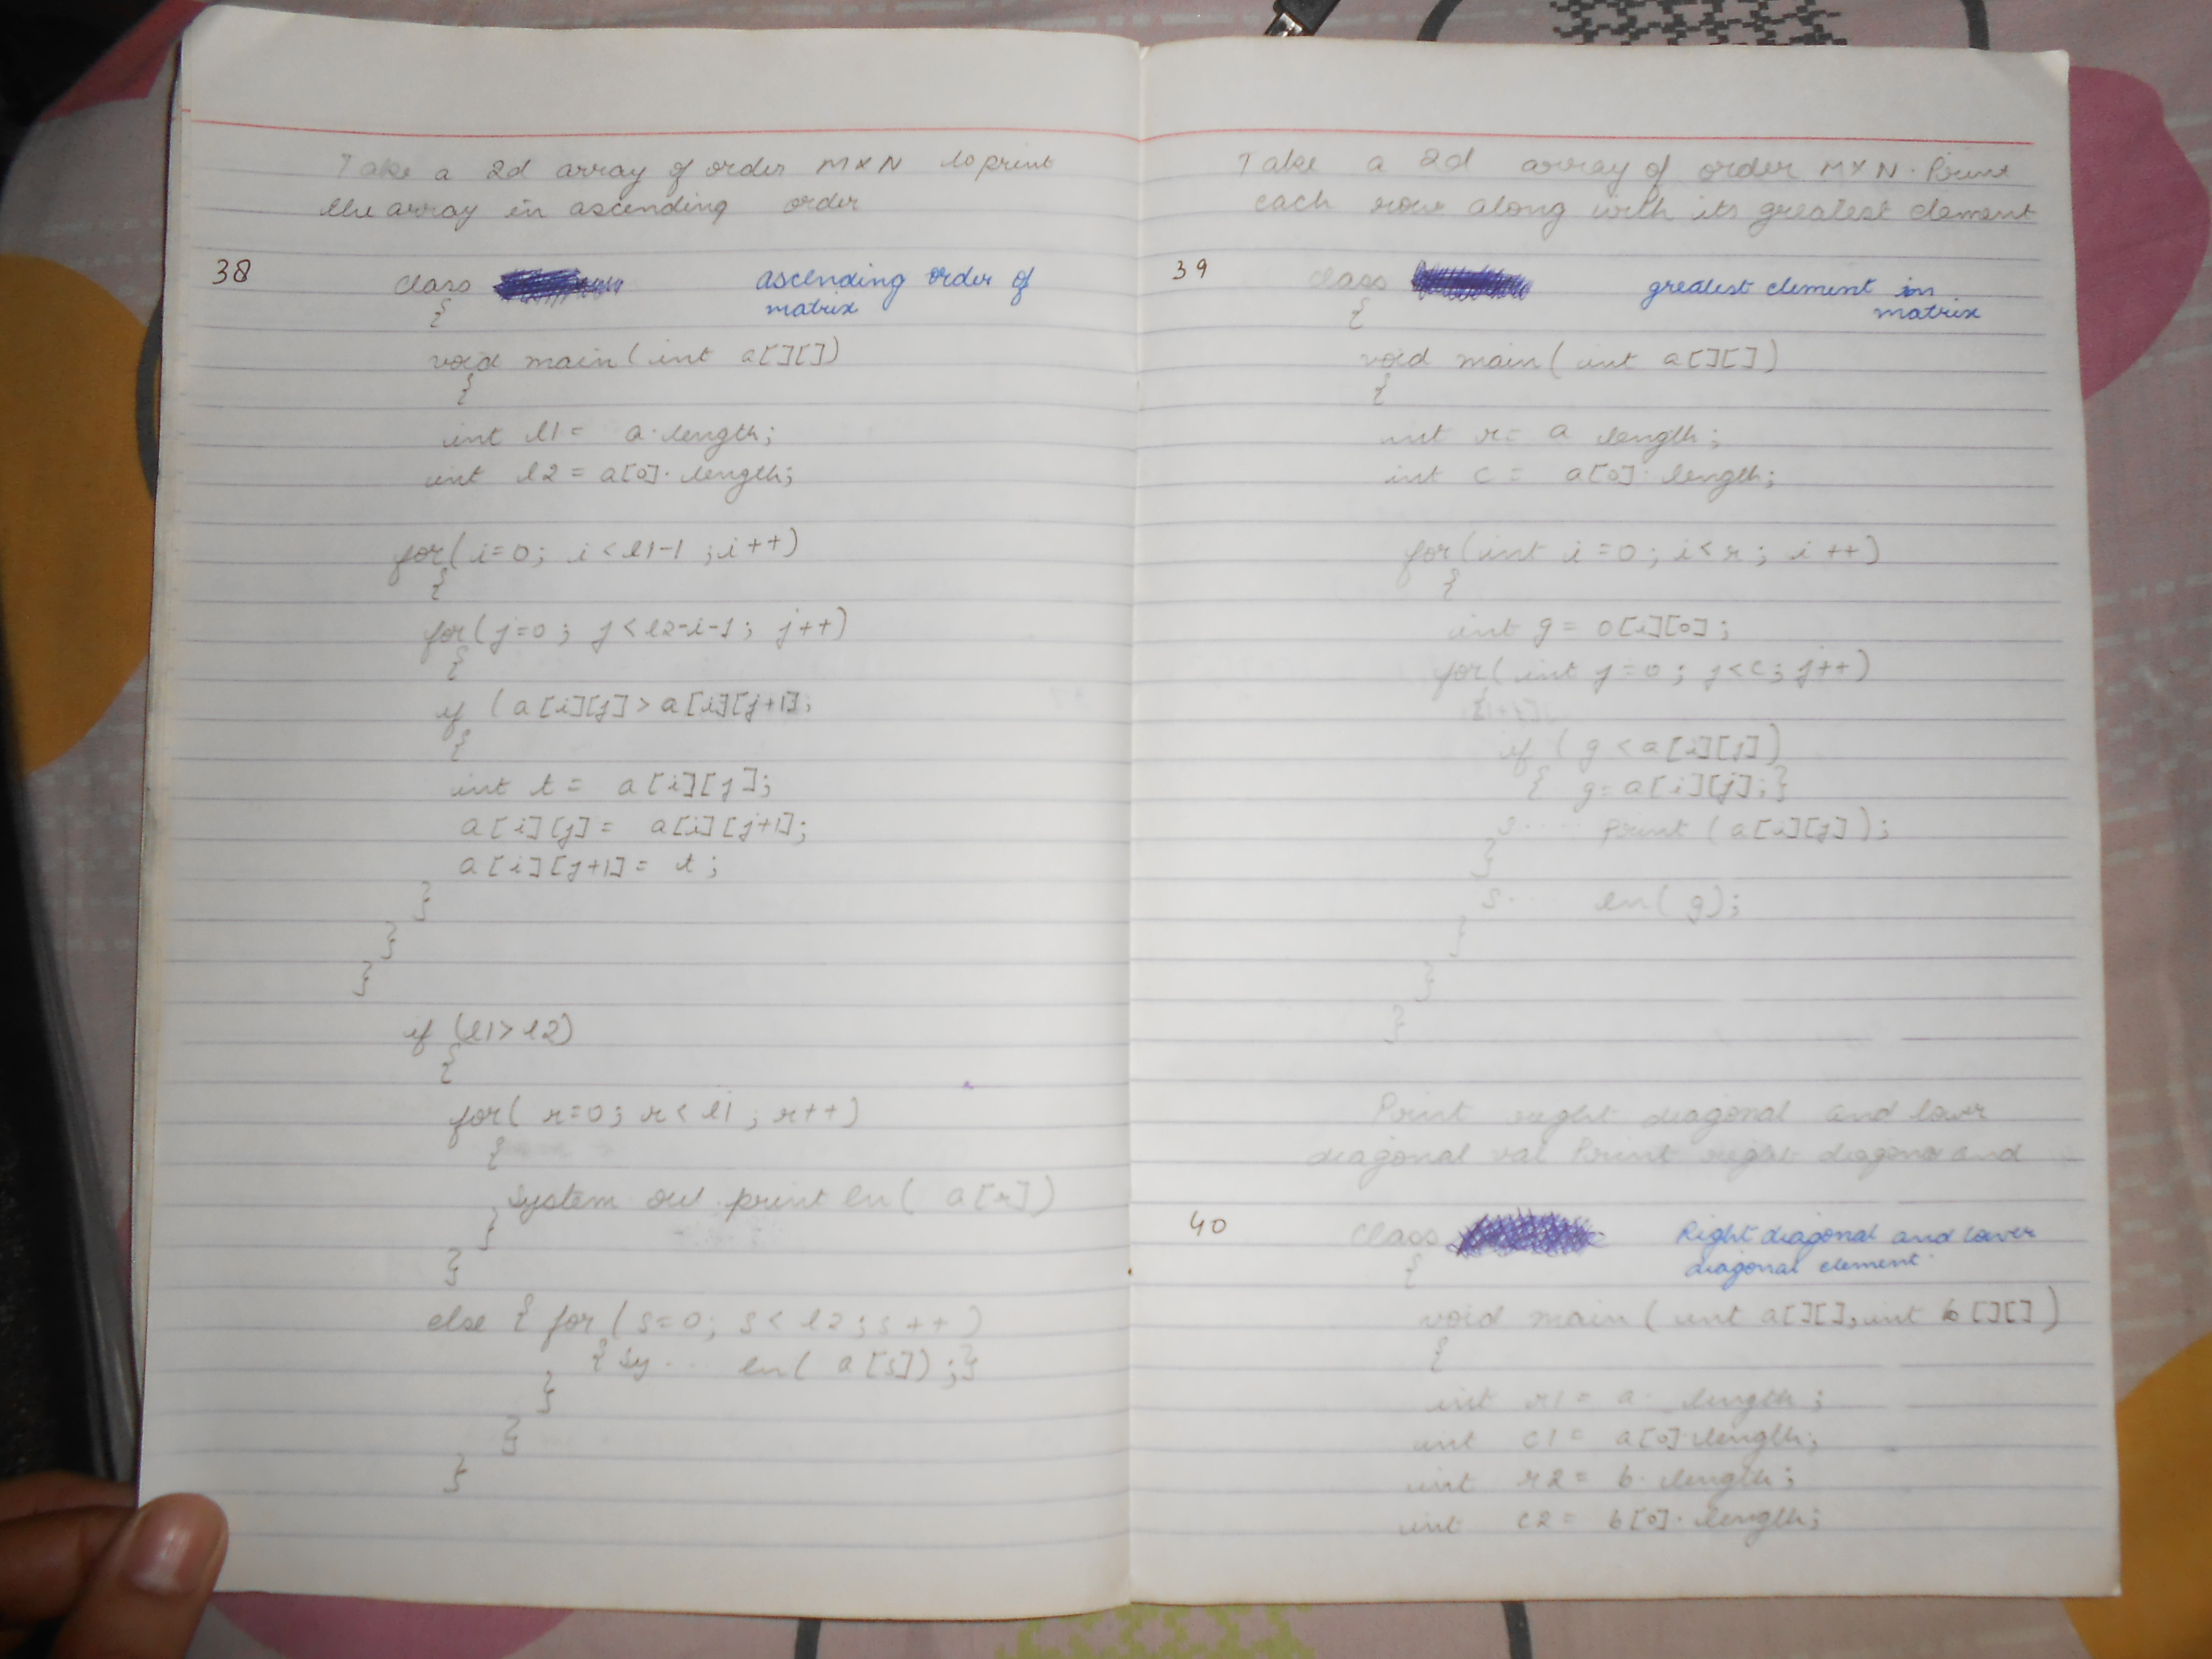 Take a 2d array of order M×N to print
the array in ascending order
38 class ascending order of
matrix
{
void main(int a[][])
{
int l1 = a.length;
int l2 = a[0].length;
for(i=0; i<l1-1 ; i++)
{
for(j=0; j<l2-i-1; j++)
{
if (a[i][j]>a[i][j+1];
{
int t = a[i][j];
a[i][j] = a[i][j+1];
a[i][j+1] = t;
}
}
}
if (l1>l2)
{
for( r=0; r<l1 ; r++)
{
System out println( a[r])
}
}
else { for(s=0; s<l2; s++)
{ Sy.... ln( a[s]) ;}
}
}
}
Take a 2d array of order M×N. Print
each row along with its greatest element
39 class greatest element in
matrix
{
void main( int a[][])
{
int r= a length;
int c = a[0].length;
for(int i=0; i<r; i++)
{
int g = 0[i][0];
for(int j=0; j<c; j++)
{
if ( g<a[i][j])
{ g=a[i][j];}
s.... Print (a[i][j]);
}
S.... ln( g);
}
}
}
Print right diagonal and lower
diagonal val Print right diagona and
40 class Right diagonal and lower
diagonal element.
{
void main( int a[][], int b[][])
{
int r1 = a. length ;
int c1 = a[0].length;
int r2 = b. length;
int c2 = b[0].length;